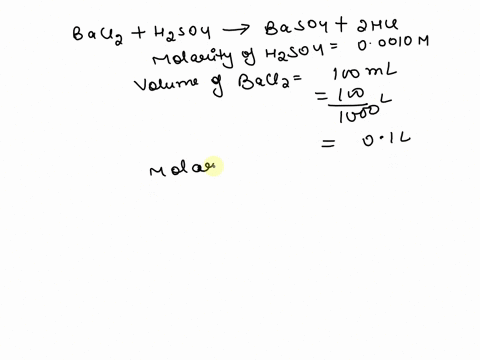 BaCl2 + H2SO4 → BaSO4 + 2HCl
Molarity of H2SO4 = 0.0010 M
Volume of BaCl2 = 100 mL
= 100/1000 L
= 0.1L
Molar